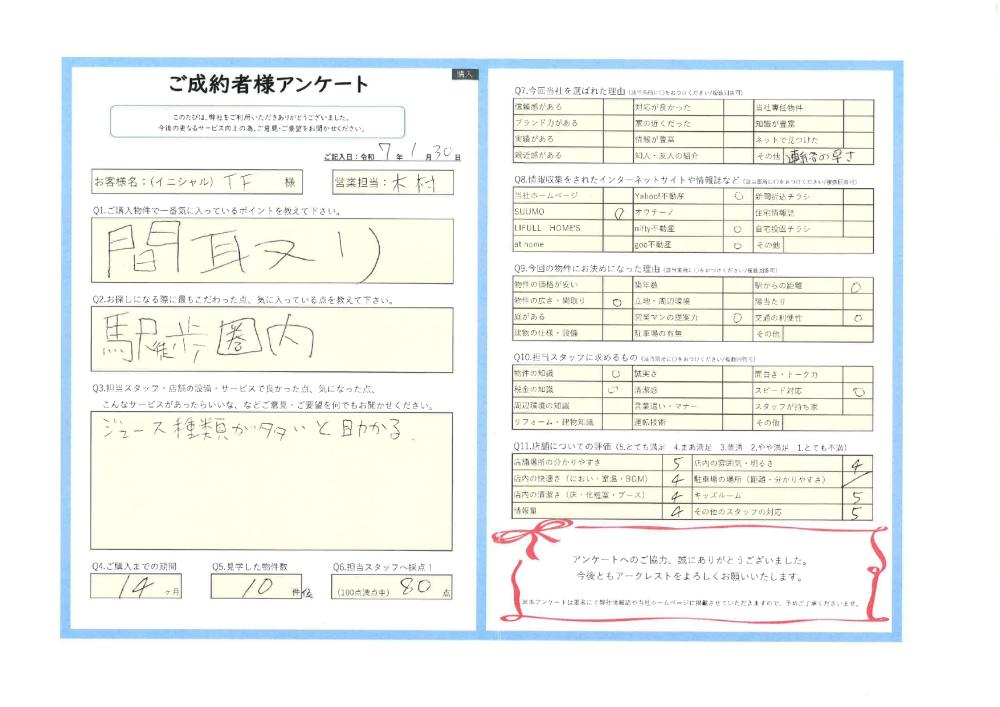 購入
ご成約者様アンケート
このたびは、弊社をご利用いただきありがとうございました。
今後の更なるサービス向上の為、ご意見・ご要望をお聞かせください。
ご記入日：令和 7 年 1 月 30 日
お客様名：(イニシャル) T F 様
営業担当：木村
Q1.ご購入物件で一番気に入っているポイントを教えて下さい。
間取り
Q2.お探しになる際に最もこだわった点、気に入っている点を教えて下さい。
駅徒歩圏内
Q3.担当スタッフ・店舗の設備・サービスで良かった点、気になった点、
こんなサービスがあったらいいな、などご意見・ご要望を何でもお聞かせください。
ジュース種類が多いと助かる.
Q4.ご購入までの期間
14 ヶ月
Q5.見学した物件数
10 件
Q6.担当スタッフへ採点！
(100点満点中) 80 点
Q7.今回当社を選ばれた理由 (該当箇所に○をおつけください/複数回答可)
信頼感がある 対応が良かった 当社専任物件
ブランド力がある 家の近くだった 知識が豊富
実績がある 情報が豊富 ネットで見つけた
親近感がある 知人・友人の紹介 その他 連絡の早さ
Q8.情報収集をされたインターネットサイトや情報誌など (該当箇所に○をおつけください/複数回答可)
当社ホームページ Yahoo!不動産 ○ 新聞折込チラシ
SUUMO ○ オウチーノ 住宅情報誌
LIFULL HOME'S nifty不動産 ○ 自宅投函チラシ
at home goo不動産 ○ その他
Q9.今回の物件にお決めになった理由 (該当箇所に○をおつけください/複数回答可)
物件の価格が安い 築年数 駅からの距離 ○
物件の広さ・間取り ○ 立地・周辺環境 陽当たり
庭がある 営業マンの提案力 ○ 交通の利便性 ○
建物の仕様・設備 駐車場の有無 その他
Q10.担当スタッフに求めるもの (該当箇所に○をおつけください/複数回答可)
物件の知識 ○ 誠実さ 面白さ・トーク力
税金の知識 ○ 清潔感 スピード対応 ○
周辺環境の知識 言葉遣い・マナー スタッフが持ち家
リフォーム・建物知識 運転技術 その他
Q11.店舗についての評価 (5.とても満足 4.まあ満足 3.普通 2.やや満足 1.とても不満)
店舗場所の分かりやすさ 5 店内の雰囲気・明るさ 4
店内の快適さ(におい・室温・BGM) 4 駐車場の場所(距離・分かりやすさ)
店内の清潔さ(床・化粧室・ブース) 4 キッズルーム 5
情報量 4 その他のスタッフの対応 5
アンケートへのご協力、誠にありがとうございました。
今後ともアークレストをよろしくお願いいたします。
※本アンケートは匿名にて弊社情報誌や当社ホームページに掲載させていただきますので、予めご了承くださいませ。